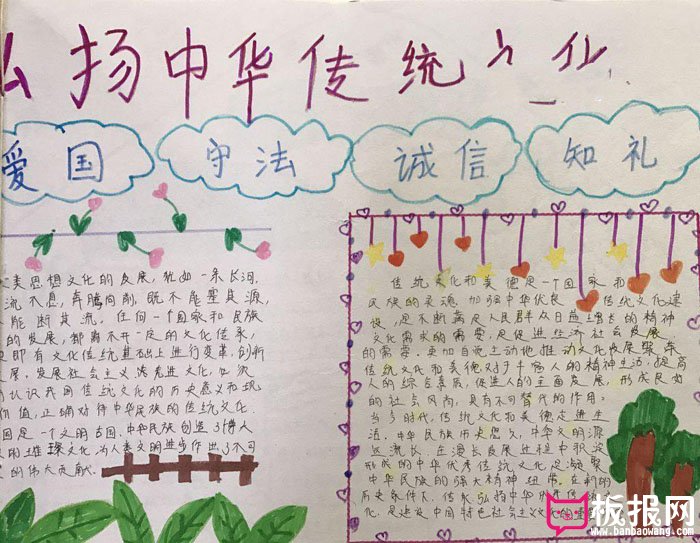 弘扬中华传统文化
爱国 守法 诚信 知礼
类思想文化的发展,犹如一条长河,
流不息,奔腾向前,既不能
能断其流。任何一个国家和民族
的发展,都离不开一定的文化传承,
即有文化传统基础上进行变革,创新
展。发展社会主义先进文化,必须
认识我国传统文化的历史意义和现
价值,正确对待中华民族的传统文化.
国是一个文明古国.中华民族创造了博大
文化,为人类文明进步作出了不可
的伟大贡献.
传统文化和美德是一个国家和
民族的灵魂.加强中华优良 传统文化建
设,是不断满足人民群众日益增长的精神
文化需求的需要,是促进经济社会发展
的需要.更加自觉主动地推动文化发展繁荣
传统文化和美德对于丰富人的精神生活,提高
人的综合素质,促进人的全面发展,形成良好
的社会风尚,具有不可替代的作用;
当今时代,传统文化和美德走进生
活.中华民族历史悠久,中华文明源
远流长,在漫长发展进程中积淀
形成的中华优秀传统文化,是凝聚
中华民族的强大精神纽带.在新的
历史条件下,传承弘扬中华
化,是建设中国特色社会主义文化的
板报网
www.banbaowang.com